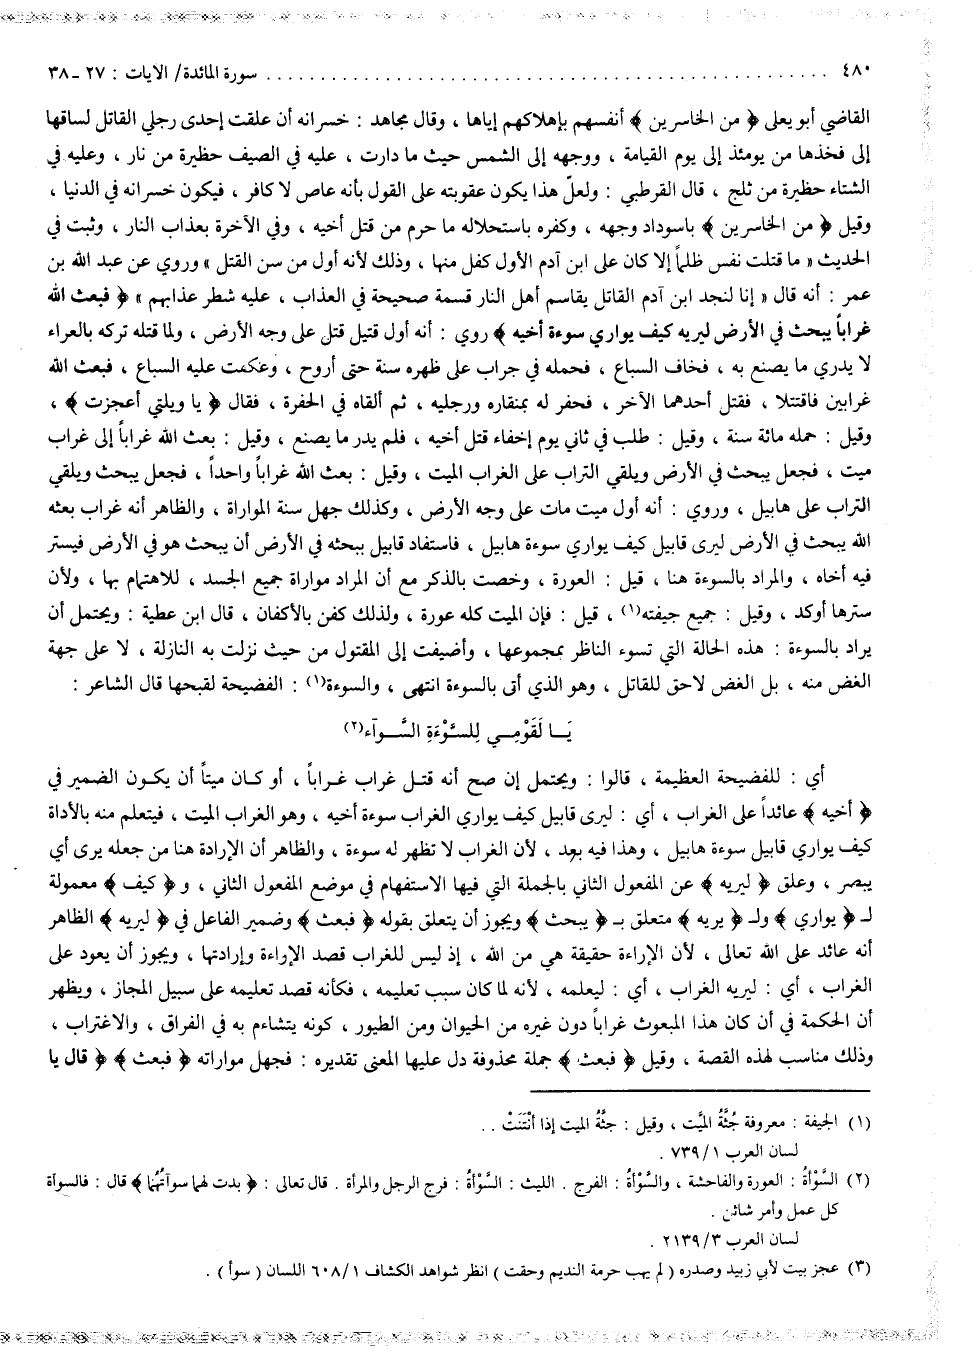 ٤٨٠ . . . . . . . . . . . . . . . . . . . . . . . . . . . . . . . . . . . . . . . . سورة المائدة/ الايات : ٢٧ - ٣٨
القاضي أبو يعلى ﴿ من الخاسرين ﴾ أنفسهم بإهلاكهم إياها ، وقال مجاهد : خسرانه أن علقت إحدى رجلي القاتل لساقها
إلى فخذها من يومئذ إلى يوم القيامة ، ووجهه إلى الشمس حيث ما دارت ، عليه في الصيف حظيرة من نار ، وعليه في
الشتاء حظيرة من ثلج ، قال القرطبي : ولعلّ هذا يكون عقوبته على القول بأنه عاص لا كافر ، فيكون خسرانه في الدنيا ،
وقيل ﴿ من الخاسرين ﴾ باسوداد وجهه ، وكفره باستحلاله ما حرم من قتل أخيه ، وفي الآخرة بعذاب النار ، وثبت في
الحديث « ما قتلت نفس ظلماً إلا كان على ابن آدم الأول كفل منها ، وذلك لأنه أول من سن القتل » وروي عن عبد الله بن
عمر : أنه قال « إنا لنجد ابن آدم القاتل يقاسم أهل النار قسمة صحيحة في العذاب ، عليه شطر عذابهم » ﴿ فبعث الله
غراباً يبحث في الأرض ليريه كيف يواري سوءة أخيه ﴾ روي : أنه أول قتيل قتل على وجه الأرض ، ولما قتله تركه بالعراء
لا يدري ما يصنع به ، فخاف السباع ، فحمله في جراب على ظهره سنة حتى أروح ، وعكفت عليه السباع ، فبعث الله
غرابين فاقتتلا ، فقتل أحدهما الآخر ، فحفر له بمنقاره ورجليه ، ثم ألقاه في الحفرة ، فقال ﴿ يا ويلتي أعجزت ﴾ ،
وقيل : حمله مائة سنة ، وقيل : طلب في ثاني يوم إخفاء قتل أخيه ، فلم يدر ما يصنع ، وقيل : بعث الله غراباً إلى غراب
ميت ، فجعل يبحث في الأرض ويلقي التراب على الغراب الميت ، وقيل : بعث الله غراباً واحداً ، فجعل يبحث ويلقي
التراب على هابيل ، وروي : أنه أول ميت مات على وجه الأرض ، وكذلك جهل سنة المواراة ، والظاهر أنه غراب بعثه
الله يبحث في الأرض ليرى قابيل كيف يواري سوءة هابيل ، فاستفاد قابيل ببحثه في الأرض أن يبحث هو في الأرض فيستر
فيه أخاه ، والمراد بالسوءة هنا ، قيل : العورة ، وخصت بالذكر مع أن المراد مواراة جميع الجسد ، للاهتمام بها ، ولأن
سترها أوكد ، وقيل : جميع جيفته(١) ، قيل : فإن الميت كله عورة ، ولذلك كفن بالأكفان ، قال ابن عطية : ويحتمل أن
يراد بالسوءة : هذه الحالة التي تسوء الناظر بمجموعها ، وأضيفت إلى المقتول من حيث نزلت به النازلة ، لا على جهة
الغض منه ، بل الغض لاحق للقاتل ، وهو الذي أتى بالسوءة انتهى ، والسوءة(١) : الفضيحة لقبحها قال الشاعر :
يَـا لَقَوْمِـي لِلسَّوْءَةِ السَّـوآء(٢)
أي : للفضيحة العظيمة ، قالوا : ويحتمل إن صح أنه قتـل غراب غـراباً ، أو كـان ميتاً أن يكـون الضمير في
﴿ أخيه ﴾ عائداً على الغراب ، أي : ليرى قابيل كيف يواري الغراب سوءة أخيه ، وهو الغراب الميت ، فيتعلم منه بالأداة
كيف يواري قابيل سوءة هابيل ، وهذا فيه بعد ، لأن الغراب لا تظهر له سوءة ، والظاهر أن الإرادة هنا من جعله يرى أي
يبصر ، وعلق ﴿ ليريه ﴾ عن المفعول الثاني بالجملة التي فيها الاستفهام في موضع المفعول الثاني ، و ﴿ كيف ﴾ معمولة
لـ ﴿ يواري ﴾ ولـ ﴿ يريه ﴾ متعلق بـ ﴿ يبحث ﴾ ويجوز أن يتعلق بقوله ﴿ فبعث ﴾ وضمير الفاعل في ﴿ ليريه ﴾ الظاهر
أنه عائد على الله تعالى ، لأن الإراءة حقيقة هي من الله ، إذ ليس للغراب قصد الإراءة وإرادتها ، ويجوز أن يعود على
الغراب ، أي : ليريه الغراب ، أي : ليعلمه ، لأنه لما كان سبب تعليمه ، فكأنه قصد تعليمه على سبيل المجاز ، ويظهر
أن الحكمة في أن كان هذا المبعوث غراباً دون غيره من الحيوان ومن الطيور ، كونه يتشاءم به في الفراق ، والاغتراب ،
وذلك مناسب لهذه القصة ، وقيل ﴿ فبعث ﴾ جملة محذوفة دل عليها المعنى تقديره : فجهل مواراته ﴿ فبعث ﴾ ﴿ قال يا
(١) الجيفة : معروفة جُثَّةُ الميَّت ، وقيل : جثَّةُ الميت إذا أنْتَنَتْ . .
لسان العرب ٧٣٩/١ .
(٢) السَّوْأةُ : العورة والفاحشة ، والسَّوْأةُ : الفرج . الليث : السَّوْأةُ : فرج الرجل والمرأة . قال تعالى : ﴿ بدت لهما سوآتُهُما ﴾ قال : فالسوآة
كل عمل وأمر شائن .
لسان العرب ٢١٣٩/٣ .
(٣) عجز بيت لأبي زبيد وصدره ( لم يهب حرمة النديم وحقت ) انظر شواهد الكشاف ٦٠٨/١ اللسان ( سوأ ) .